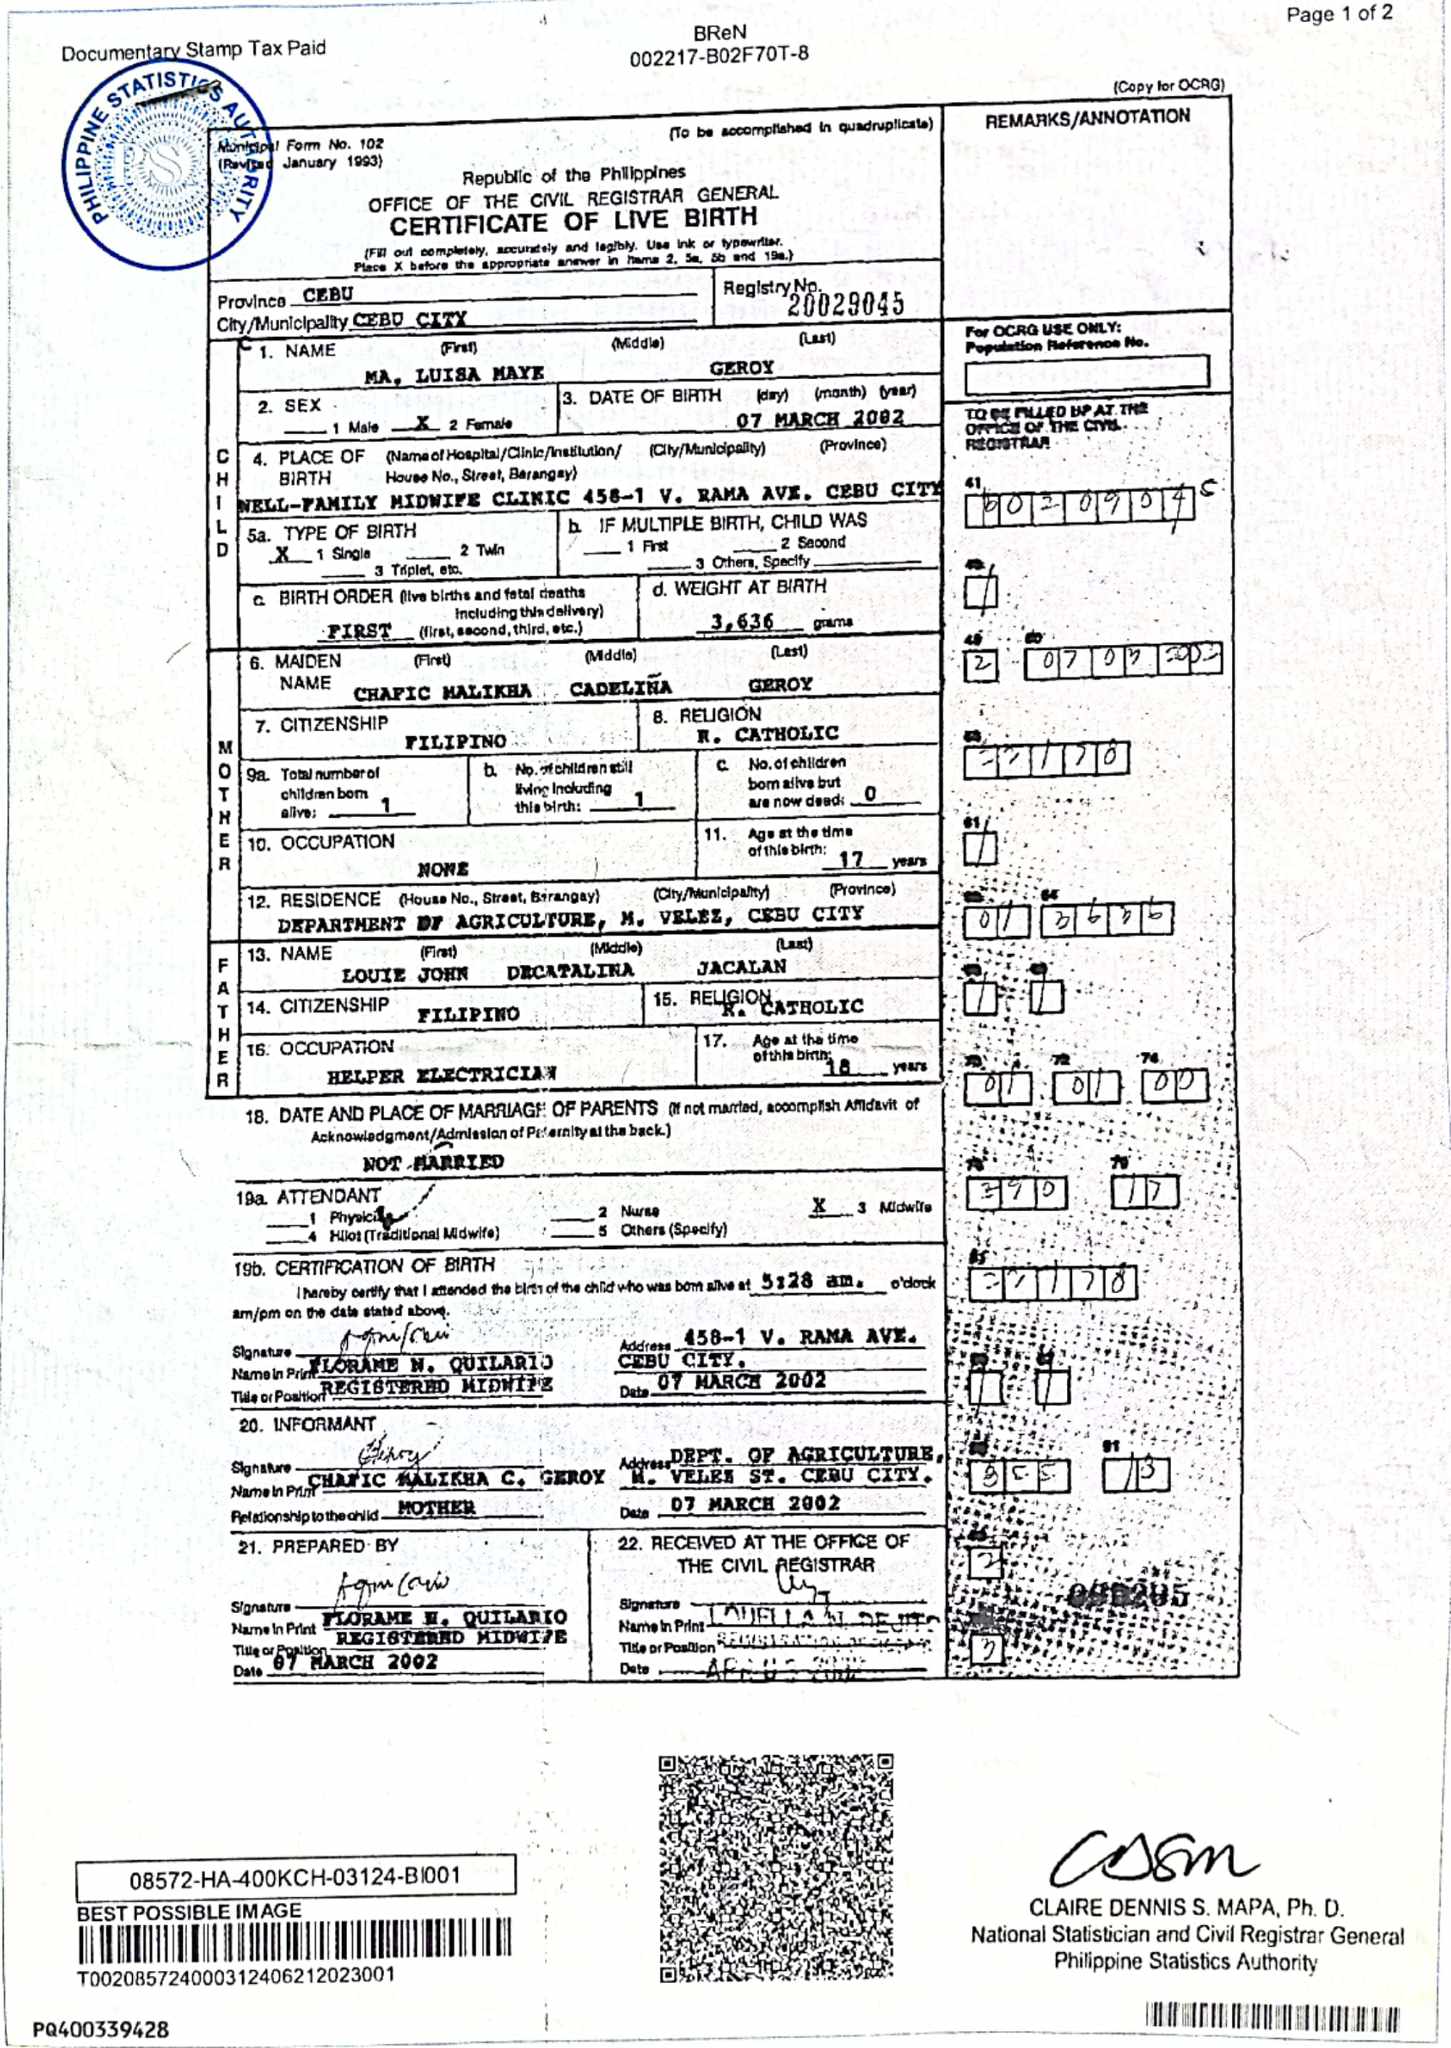 Page 1 of 2
BReN
002217-B02F70T-8
Documentary Stamp Tax Paid
PHILIPPINE STATISTICS AUTHORITY
(Copy for OCRG)
Municipal Form No. 102
(Revised January 1993)
(To be accomplished in quadruplicate)
REMARKS/ANNOTATION
Republic of the Philippines
OFFICE OF THE CIVIL REGISTRAR GENERAL
CERTIFICATE OF LIVE BIRTH
(Fill out completely, accurately and legibly. Use ink or typewriter.
Place X before the appropriate answer in items 2, 5a, 5b and 19a.)
Province CEBU
Registry No.
20029045
City/Municipality CEBU CITY
For OCRG USE ONLY:
Population Reference No.
CHILD
1. NAME (First) (Middle) (Last)
MA. LUISA MAYE GEROY
2. SEX
1 Male X 2 Female
3. DATE OF BIRTH (day) (month) (year)
07 MARCH 2002
TO BE FILLED UP AT THE
OFFICE OF THE CIVIL
REGISTRAR
4. PLACE OF BIRTH (Name of Hospital/Clinic/Institution/ (City/Municipality) (Province)
House No., Street, Barangay)
WELL-FAMILY MIDWIFE CLINIC 458-1 V. RAMA AVE. CEBU CITY
41
5a. TYPE OF BIRTH
X 1 Single 2 Twin
3 Triplet, etc.
b. IF MULTIPLE BIRTH, CHILD WAS
1 First 2 Second
3 Others, Specify
c. BIRTH ORDER (live births and fetal deaths
including this delivery)
FIRST (first, second, third, etc.)
d. WEIGHT AT BIRTH
3,636 grams
MOTHER
6. MAIDEN NAME (First) (Middle) (Last)
CHAFIC MALIKHA CADELIÑA GEROY
7. CITIZENSHIP
FILIPINO
8. RELIGION
R. CATHOLIC
9a. Total number of
children born
alive: 1
b. No. of children still
living including
this birth: 1
c. No. of children
born alive but
are now dead: 0
10. OCCUPATION
NONE
11. Age at the time
of this birth:
17 years
12. RESIDENCE (House No., Street, Barangay) (City/Municipality) (Province)
DEPARTMENT OF AGRICULTURE, M. VELEZ, CEBU CITY
FATHER
13. NAME (First) (Middle) (Last)
LOUIE JOHN DECATALINA JACALAN
14. CITIZENSHIP
FILIPINO
15. RELIGION
R. CATHOLIC
16. OCCUPATION
HELPER ELECTRICIAN
17. Age at the time
of this birth:
18 years
18. DATE AND PLACE OF MARRIAGE OF PARENTS (If not married, accomplish Affidavit of
Acknowledgment/Admission of Paternity at the back.)
NOT MARRIED
19a. ATTENDANT
1 Physician 2 Nurse X 3 Midwife
4 Hilot (Traditional Midwife) 5 Others (Specify)
19b. CERTIFICATION OF BIRTH
I hereby certify that I attended the birth of the child who was born alive at 5:28 am. o'clock
am/pm on the date stated above.
Signature
Name in Print FLORAME N. QUILARIO
Title or Position REGISTERED MIDWIFE
Address 458-1 V. RAMA AVE.
CEBU CITY.
Date 07 MARCH 2002
20. INFORMANT
Signature Geroy
Name in Print CHAFIC MALIKHA C. GEROY
Relationship to the child MOTHER
Address DEPT. OF AGRICULTURE,
M. VELEZ ST. CEBU CITY.
Date 07 MARCH 2002
21. PREPARED BY
Signature
Name in Print FLORAME N. QUILARIO
Title or Position REGISTERED MIDWIFE
Date 07 MARCH 2002
22. RECEIVED AT THE OFFICE OF
THE CIVIL REGISTRAR
Signature
Name in Print
Title or Position
Date
08572-HA-400KCH-03124-BI001
BEST POSSIBLE IMAGE
T002085724000312406212023001
CLAIRE DENNIS S. MAPA, Ph. D.
National Statistician and Civil Registrar General
Philippine Statistics Authority
PQ400339428